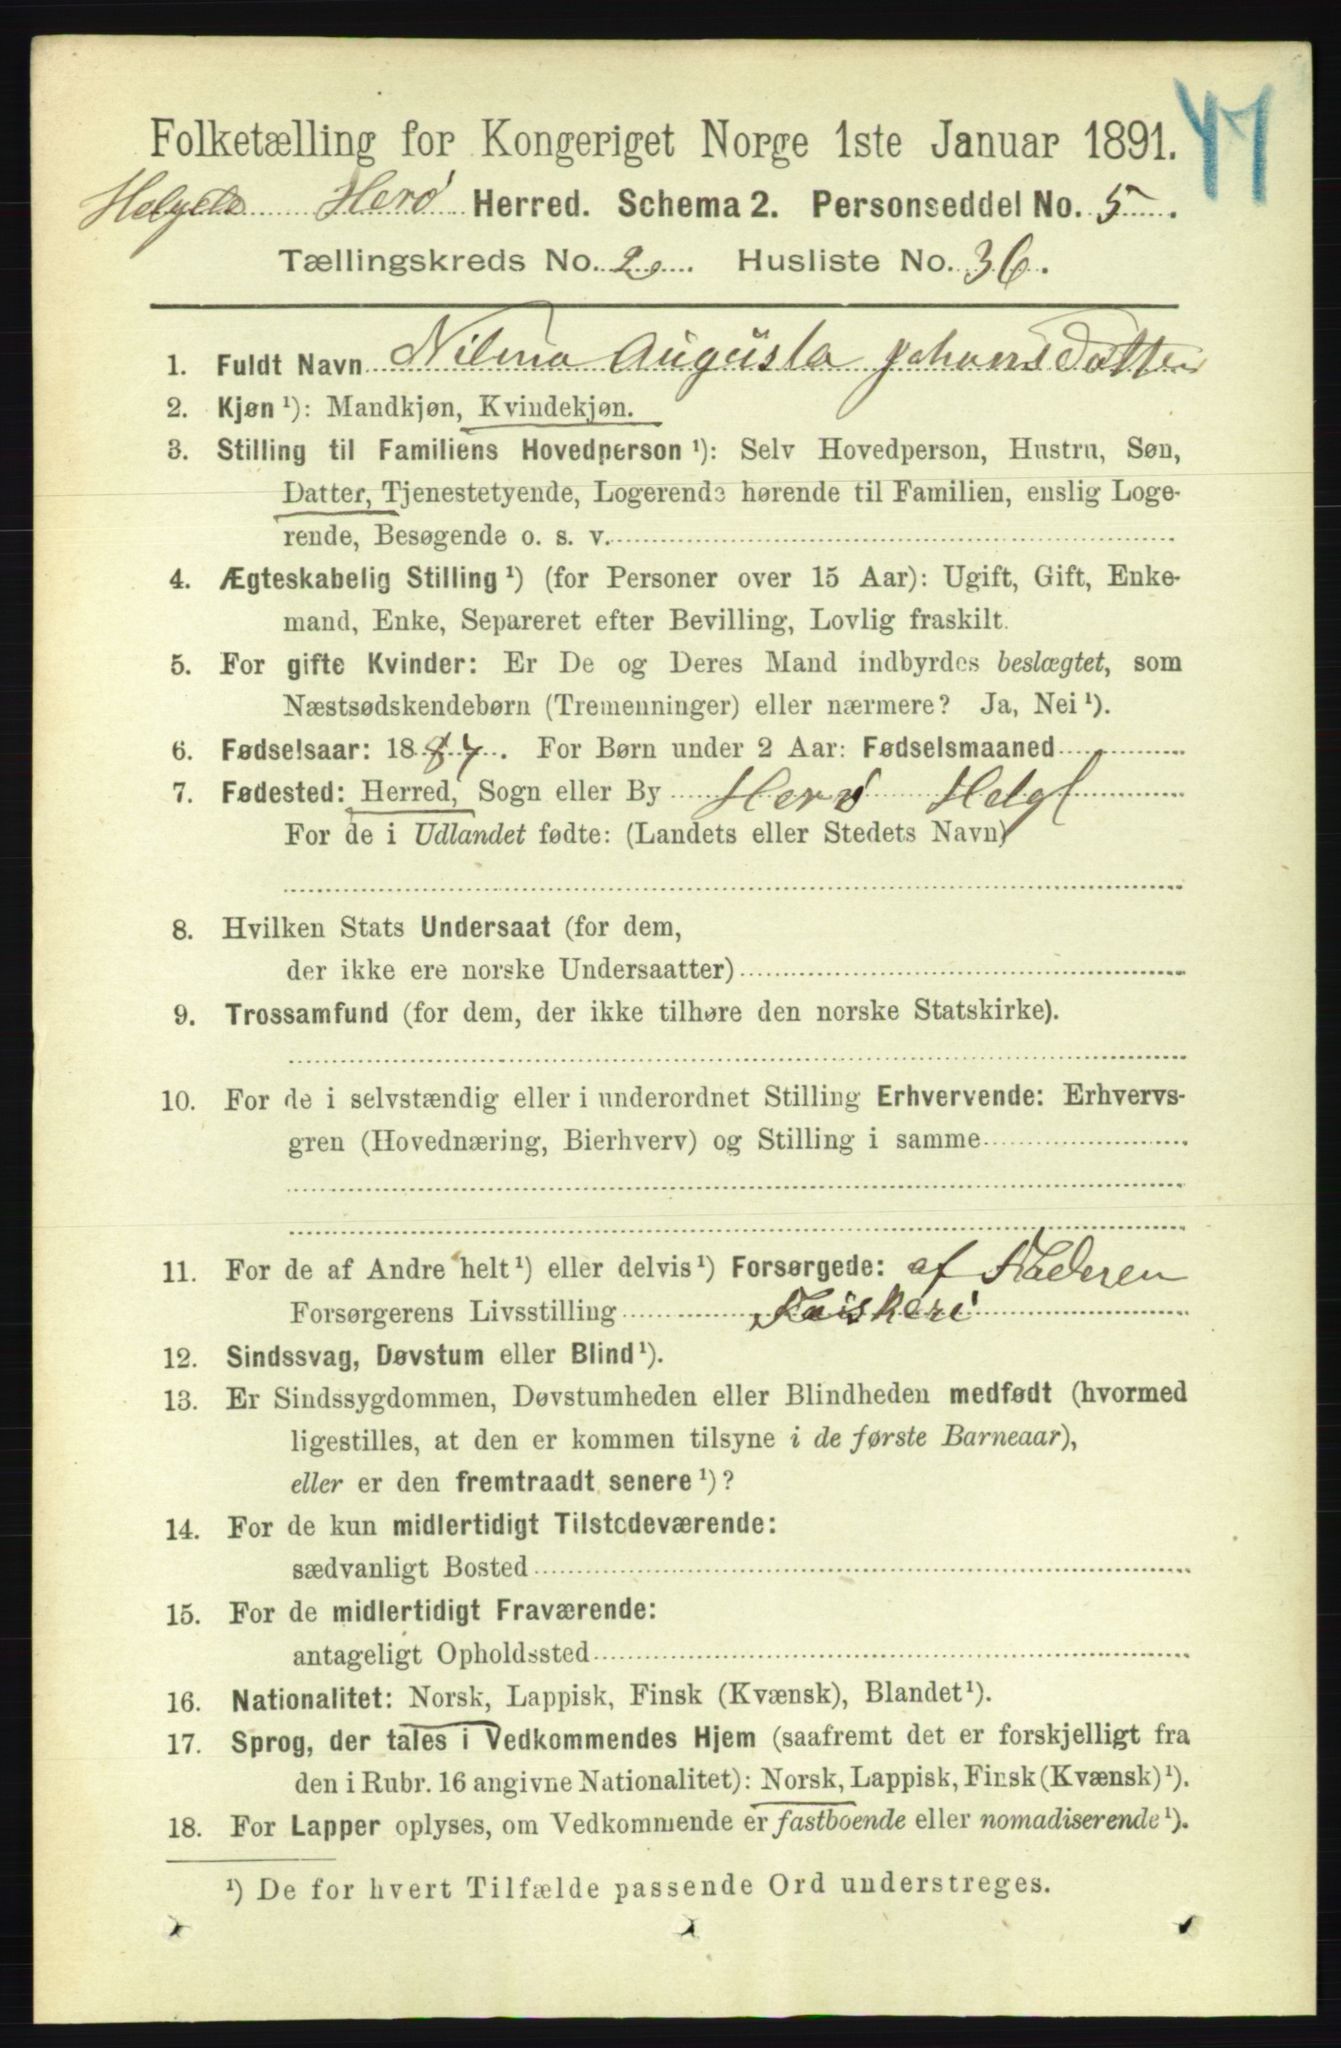 47
Folketælling for Kongeriget Norge 1ste Januar 1891.
Herø Herred. Schema 2. Personseddel No. 5.
Tællingskreds No. 2. Husliste No. 36.
1. Fuldt Navn Nilina Augusta Johansdatter
2. Kjøn ¹): Mandkjøn, Kvindekjøn.
3. Stilling til Familiens Hovedperson ¹): Selv Hovedperson, Hustru, Søn,
Datter, Tjenestetyende, Logerende hørende til Familien, enslig Loge-
rende, Besøgende o. s. v.
4. Ægteskabelig Stilling ¹) (for Personer over 15 Aar): Ugift, Gift, Enke-
mand, Enke, Separeret efter Bevilling, Lovlig fraskilt.
5. For gifte Kvinder: Er De og Deres Mand indbyrdes beslægtet, som
Næstsødskendebørn (Tremenninger) eller nærmere? Ja, Nei ¹).
6. Fødselsaar: 1887. For Børn under 2 Aar: Fødselsmaaned
7. Fødested: Herred, Sogn eller By Herø Helgl
For de i Udlandet fødte: (Landets eller Stedets Navn)
8. Hvilken Stats Undersaat (for dem,
der ikke ere norske Undersaatter)
9. Trossamfund (for dem, der ikke tilhøre den norske Statskirke).
10. For de i selvstændig eller i underordnet Stilling Erhvervende: Erhvervs-
gren (Hovednæring, Bierhverv) og Stilling i samme
11. For de af Andre helt ¹) eller delvis ¹) Forsørgede: af Faderen
Forsørgerens Livsstilling Fiskeri
12. Sindssvag, Døvstum eller Blind ¹).
13. Er Sindssygdommen, Døvstumheden eller Blindheden medfødt (hvormed
ligestilles, at den er kommen tilsyne i de første Barneaar),
eller er den fremtraadt senere ¹)?
14. For de kun midlertidigt Tilstedeværende:
sædvanligt Bosted
15. For de midlertidigt Fraværende:
antageligt Opholdssted
16. Nationalitet: Norsk, Lappisk, Finsk (Kvænsk), Blandet ¹).
17. Sprog, der tales i Vedkommendes Hjem (saafremt det er forskjelligt fra
den i Rubr. 16 angivne Nationalitet): Norsk, Lappisk, Finsk (Kvænsk) ¹).
18. For Lapper oplyses, om Vedkommende er fastboende eller nomadiserende ¹).
¹) De for hvert Tilfælde passende Ord understreges.